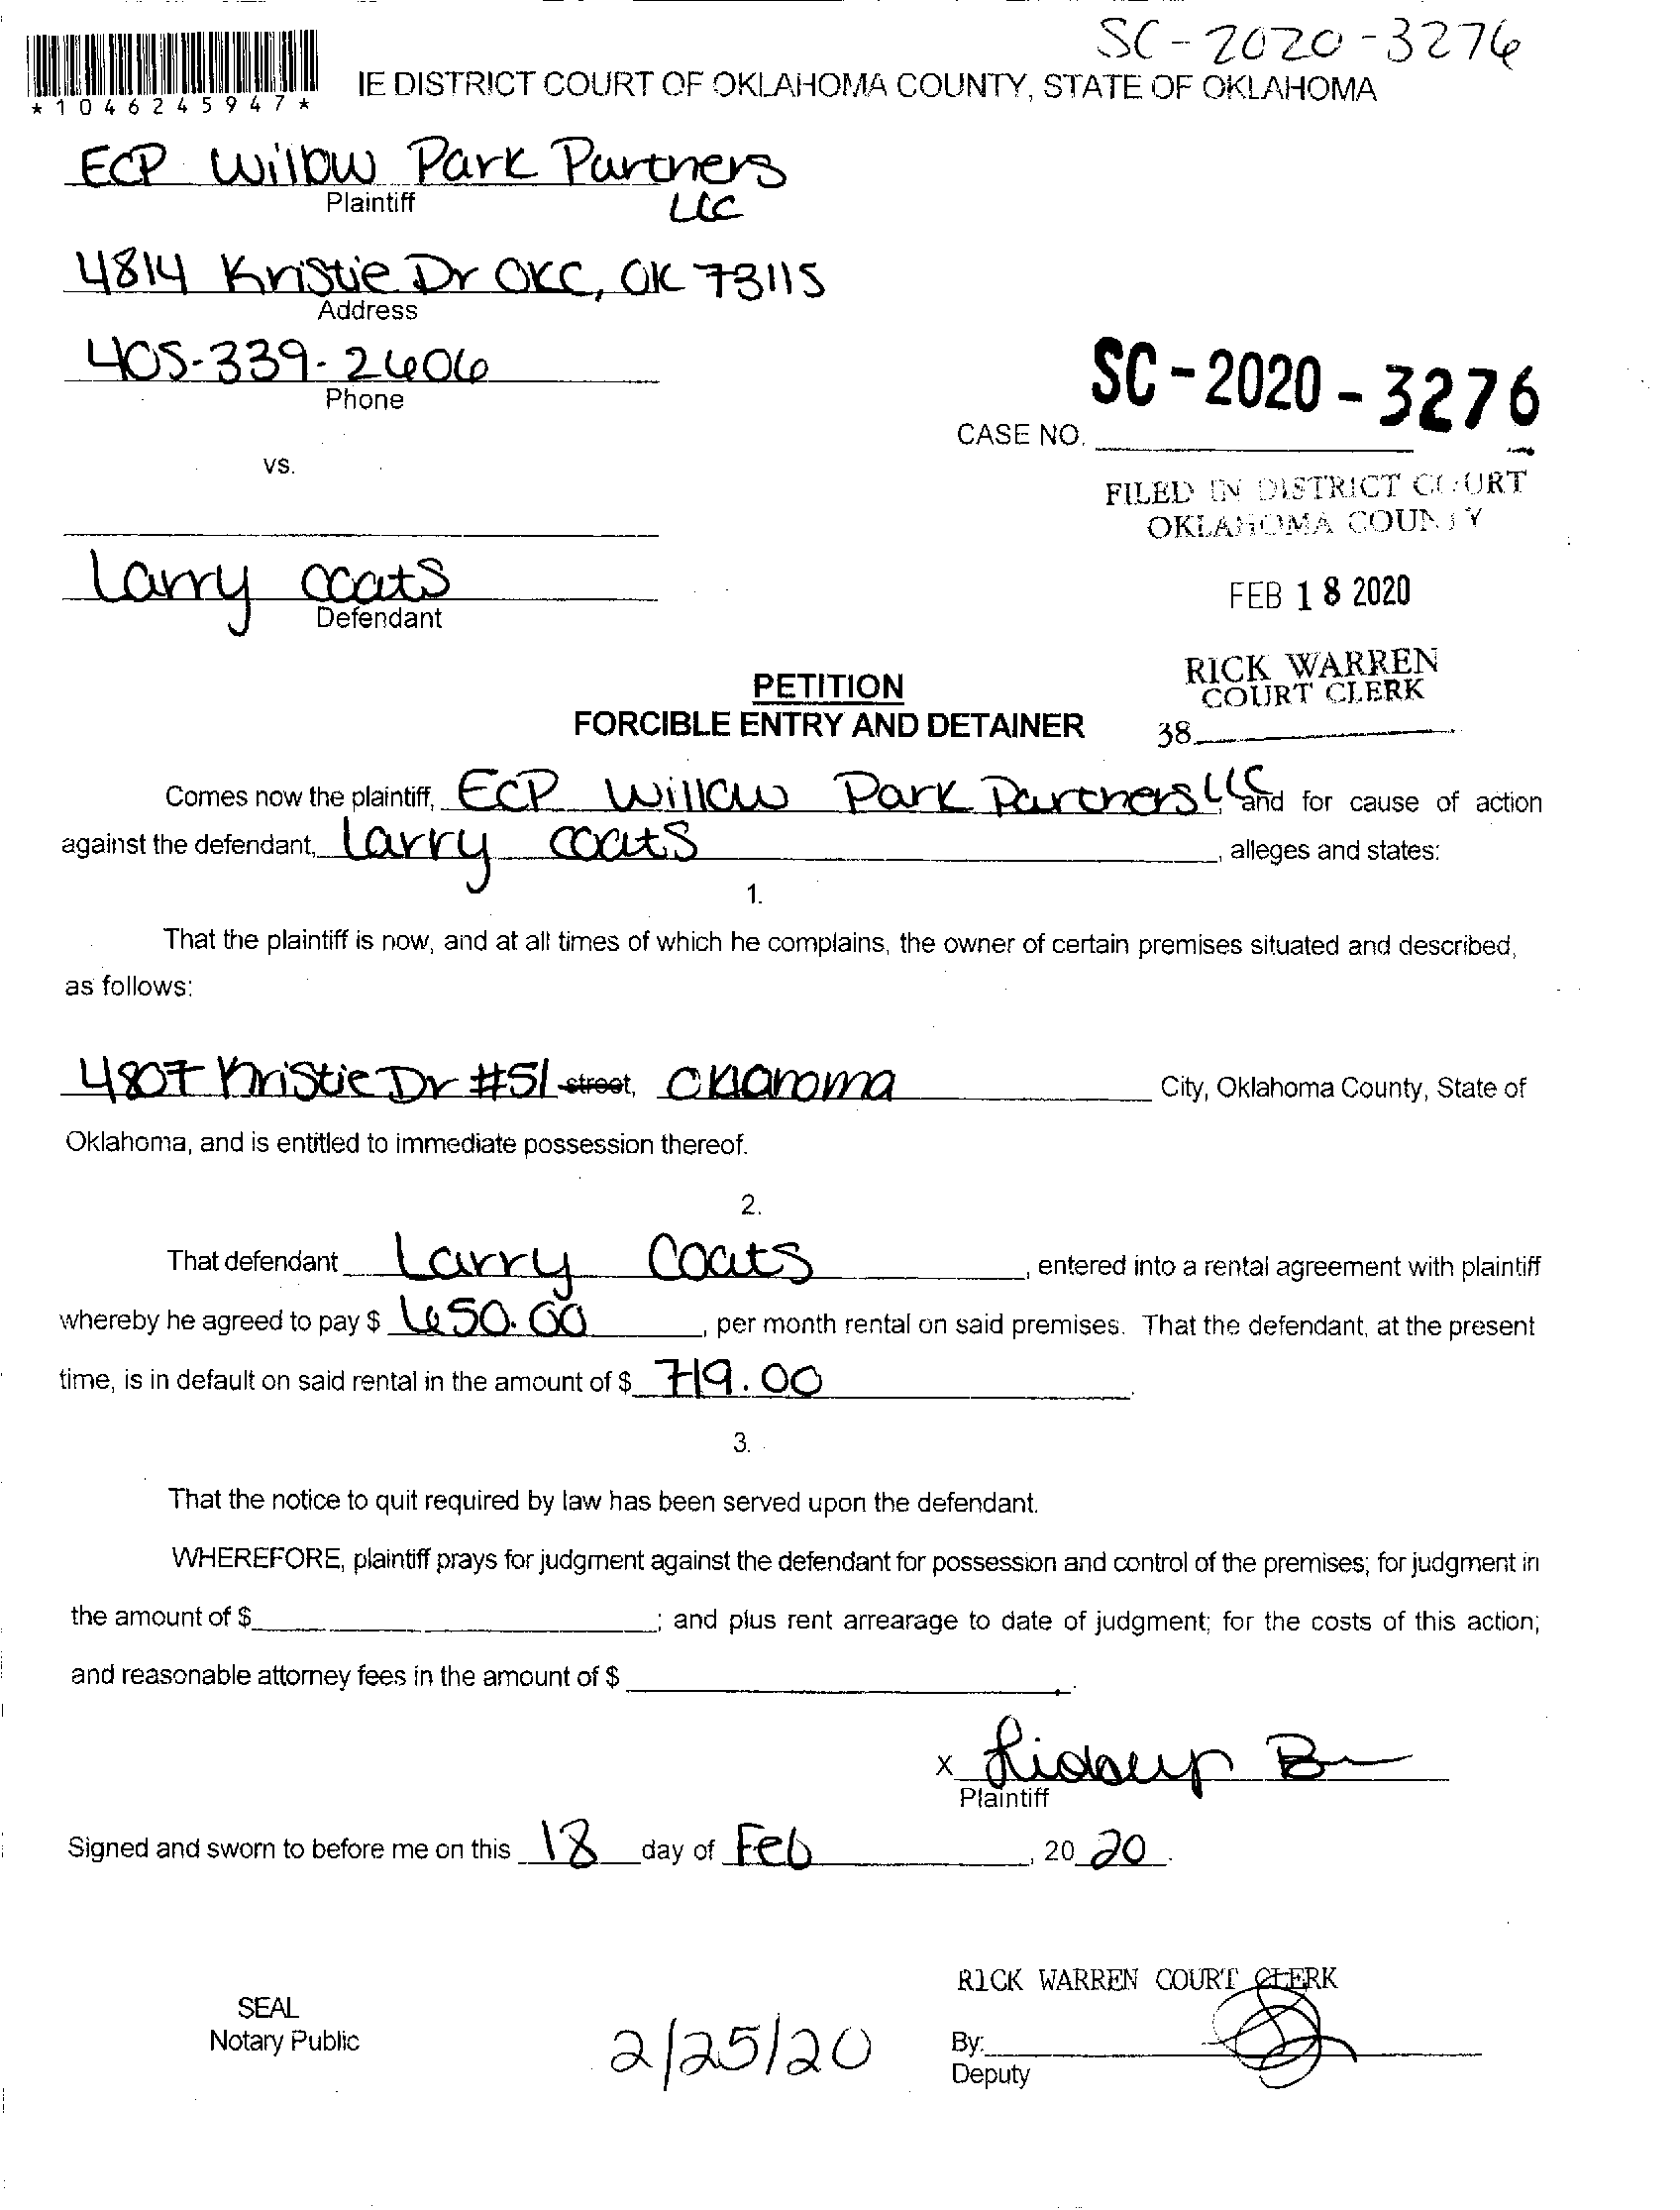 SC-2020-3276
IE DISTRICT COURT OF OKLAHOMA COUNTY, STATE OF OKLAHOMA
*1046245947*
ECP Willow Park Partners
Plaintiff LLC
4814 Kristie Dr OKC, OK 73115
Address
405-339-2606
Phone
SC-2020-3276
CASE NO.
vs.
FILED IN DISTRICT COURT
OKLAHOMA COUNTY
Larry Coats
Defendant
FEB 18 2020
RICK WARREN
COURT CLERK
38
PETITION
FORCIBLE ENTRY AND DETAINER
Comes now the plaintiff, ECP Willow Park Partners LLC, and for cause of action
against the defendant, Larry Coats, alleges and states:
1.
That the plaintiff is now, and at all times of which he complains, the owner of certain premises situated and described,
as follows:
4807 Kristie Dr #51 street, Oklahoma City, Oklahoma County, State of
Oklahoma, and is entitled to immediate possession thereof.
2.
That defendant Larry Coats, entered into a rental agreement with plaintiff
whereby he agreed to pay $ 650.00, per month rental on said premises. That the defendant, at the present
time, is in default on said rental in the amount of $ 719.00.
3.
That the notice to quit required by law has been served upon the defendant.
WHEREFORE, plaintiff prays for judgment against the defendant for possession and control of the premises; for judgment in
the amount of $ ; and plus rent arrearage to date of judgment; for the costs of this action;
and reasonable attorney fees in the amount of $ .
X
Plaintiff
Signed and sworn to before me on this 18 day of Feb, 20 20.
RICK WARREN COURT CLERK
SEAL
Notary Public
2/25/20
By:
Deputy